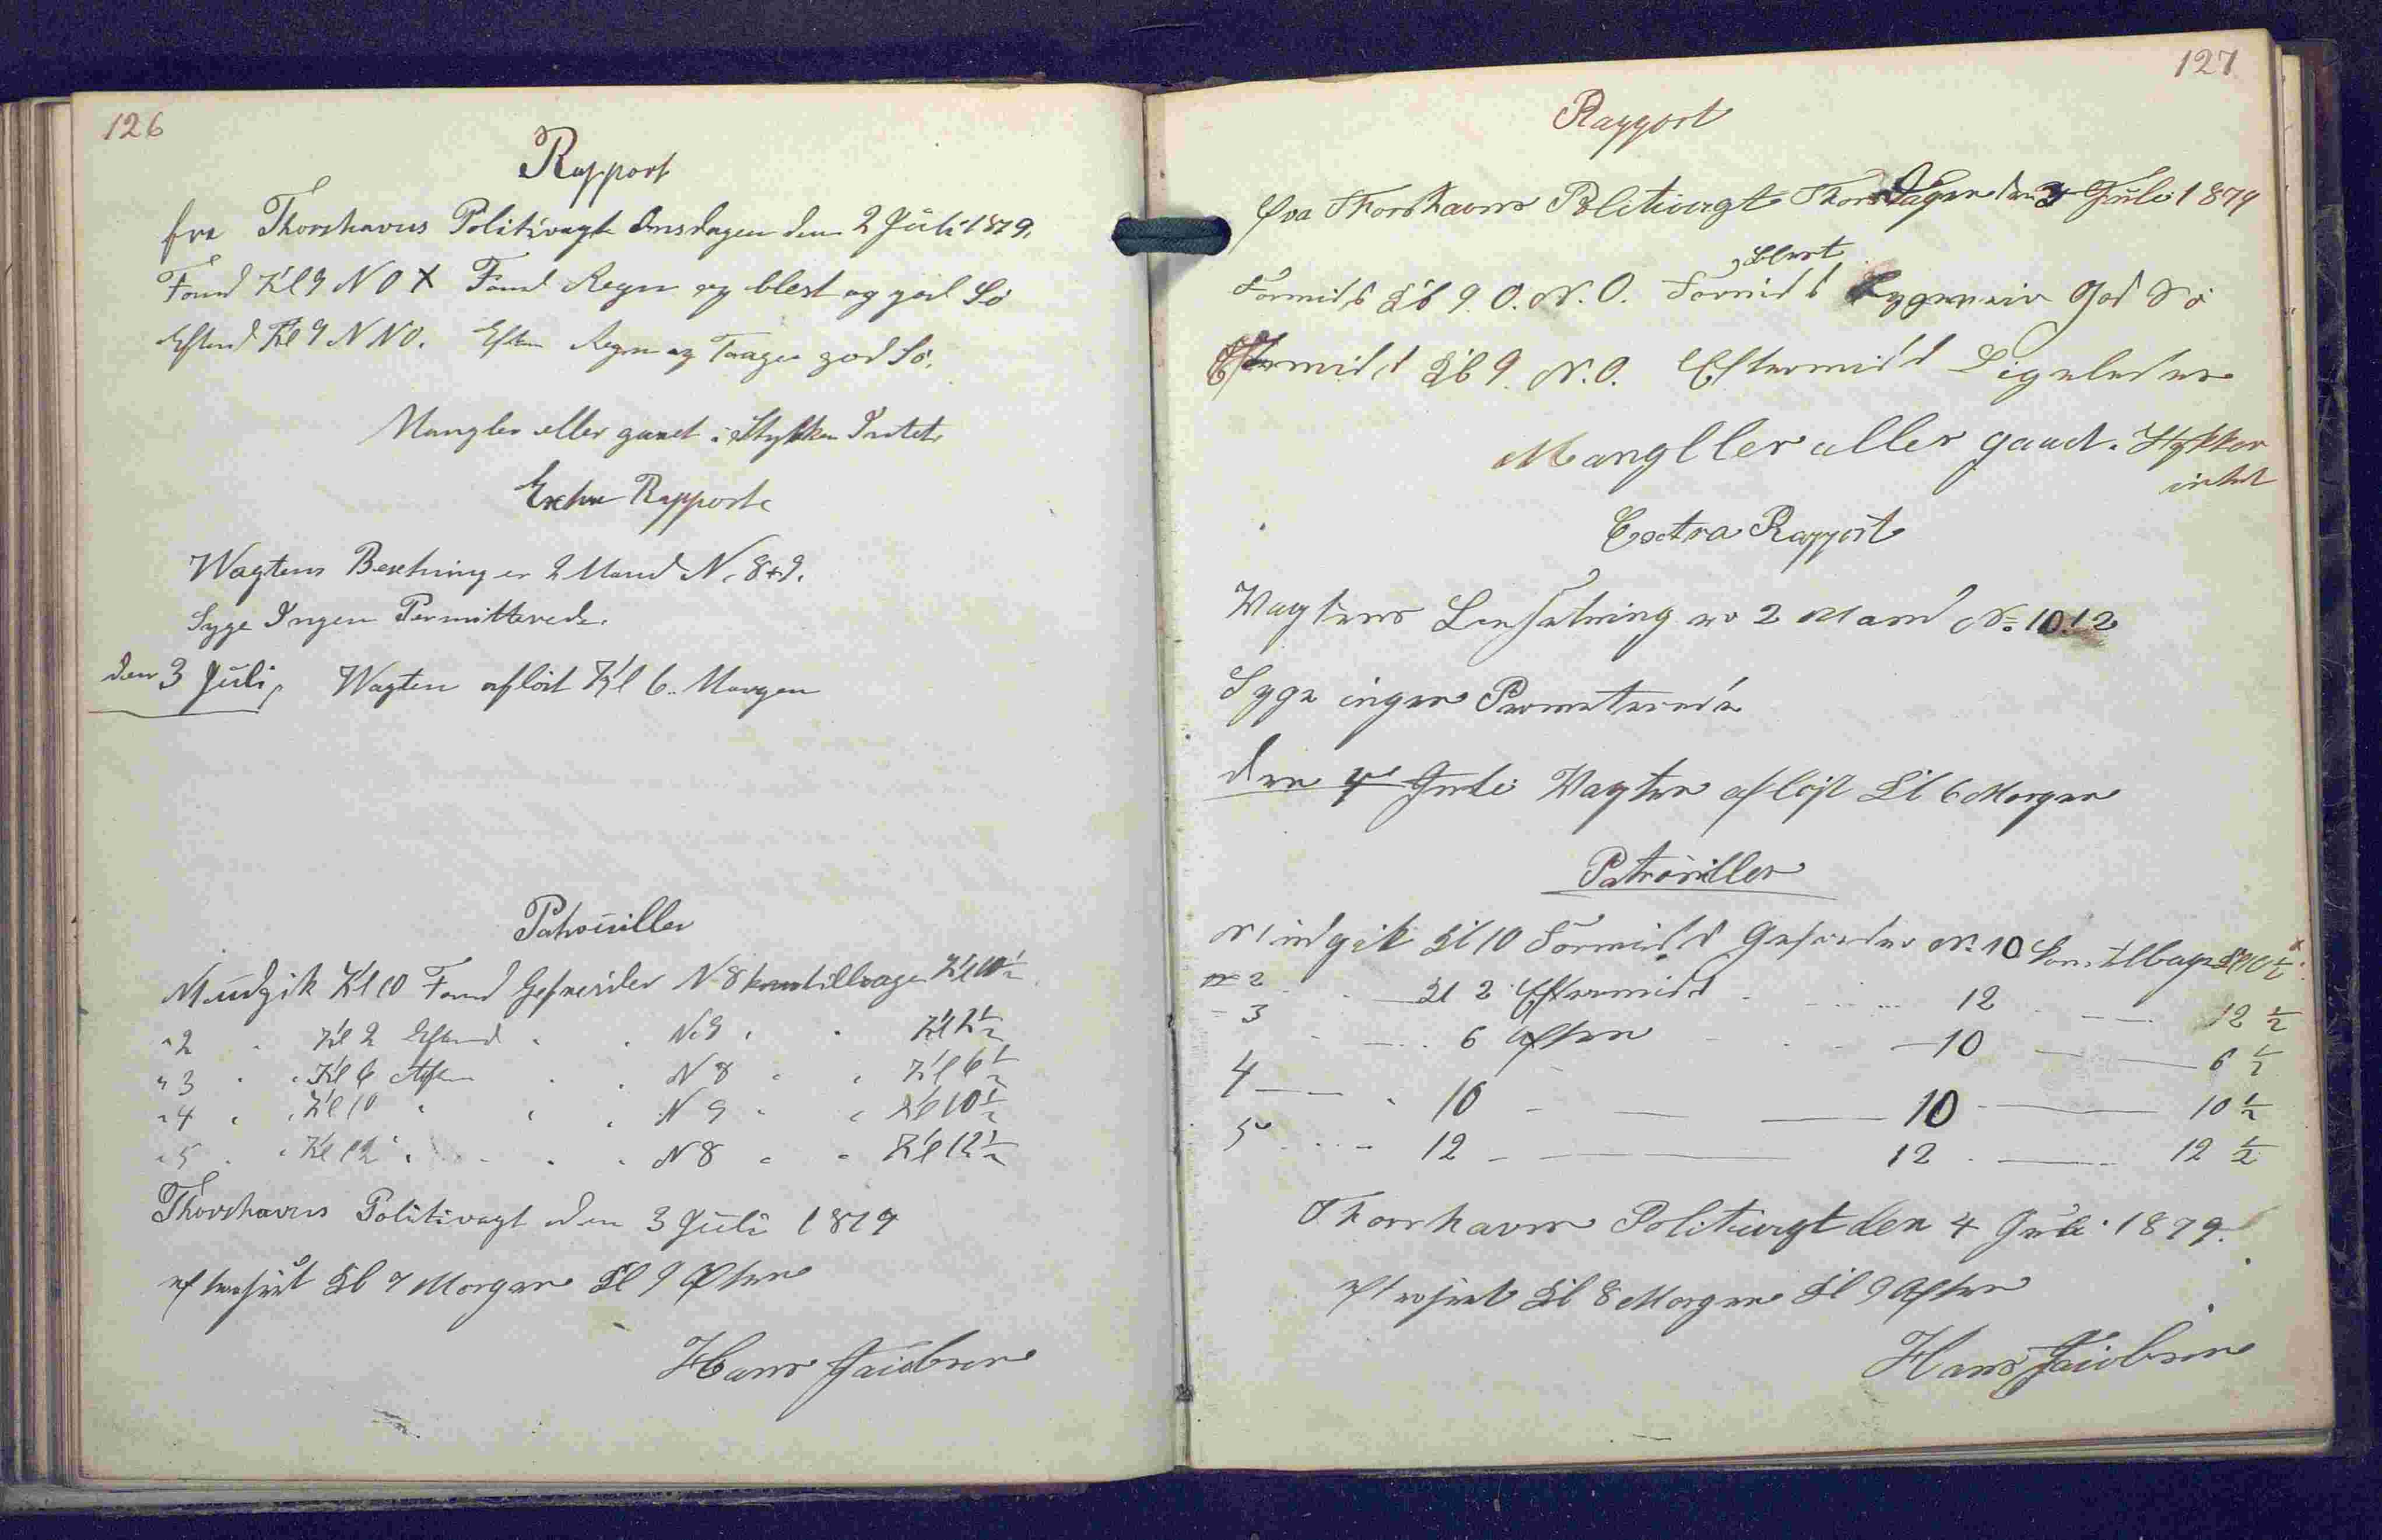 126
Rapport
fra Thorshavns Politivagt Onsdagen den 2 Juli 1879.
Formd Kl 9 N O X Formd Regn og blest og god Sö
Efterd Kl 9 N N O. Efterm Regn og Taage god Sö.
Mangler eller gaaet i Stykker Intet.
Extra Rapport
Wagtens Besetning er 2 Mand N. 8 + 9.
Syge Ingen Permitterede.
den 3 Juli, Wagten aflöst Kl 6. Morgen
Patrouiller
N 1 udgik Kl 10 Formd Gefreider N 8 kom tillbage Kl 10 1/2
" 2 " Kl 2 Efterd " " N. 9 " " Kl 2 1/2
" 3 " " Kl 6 Aften " " N 8 " " Kl 6 1/2
" 4 " " Kl 10 " " " N 9 " " Kl 10 1/2
" 5 " " Kl 12 " " " N 8 " " Kl 12 1/2
Thorshavns Politivagt den 3 Juli 1879
efterseet Kl 7 Morgen Kl 9 Aften
Hans Jacobsen
127
Rapport
fra Thorshavns Politivagt Thorsdagen den 3 Juli 1879
Formidd Kl 9. O. N. O. Formidd Blest Regnveir God Sö
Eftermidd Kl 9. N. O. Eftermidd Ligeledes
Mangller eller gaaet i Stykker
intet
Extra Rapport
Vagtens Besætning er 2 Mand No. 10. 12
Syge ingen Permeterede
den 4 Juli Vagten aflöst Kl 6 Morgen
Patrouiller
N 1 udgik Kl 10 Formidd Gefreider N. 10 kom tilbage Kl 10 1/2
2 Kl 2 Eftermidd 12 12 1/2
3 6 Aften 10 6 1/2
4 10 10 10 1/2
5 12 12 12 1/2
Thorshavns Politivagt den 4 Juli 1879.
efterseet Kl 8 Morgen Kl 9 Aften
Hans Jacobsen